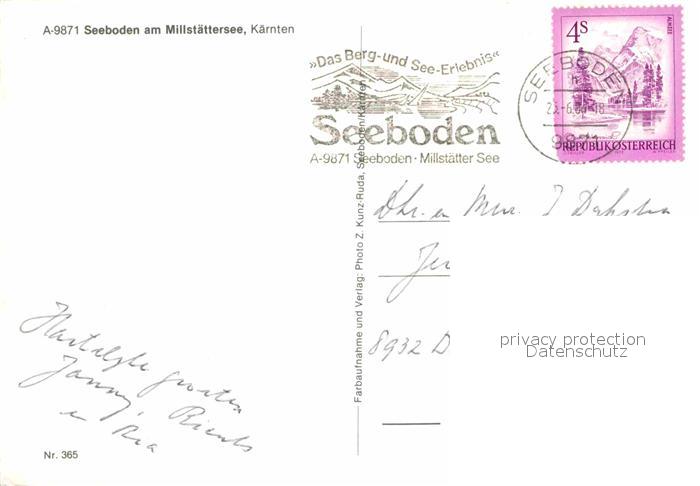 A-9871 Seeboden am Millstättersee, Kärnten
»Das Berg-und See-Erlebnis«
Seeboden
A-9871 Seeboden · Millstätter See
SEEBODEN
9871
4S
ALMSEE
REPUBLIK ÖSTERREICH
Farbaufnahme und Verlag: Photo Z. Kunz-Ruda, Seeboden/Kärnten
Dhr. en Mevr. J Dahstra
8932 D
privacy protection
Datenschutz
Hartelijke groeten
Janny, Rients
en Ria
Nr. 365